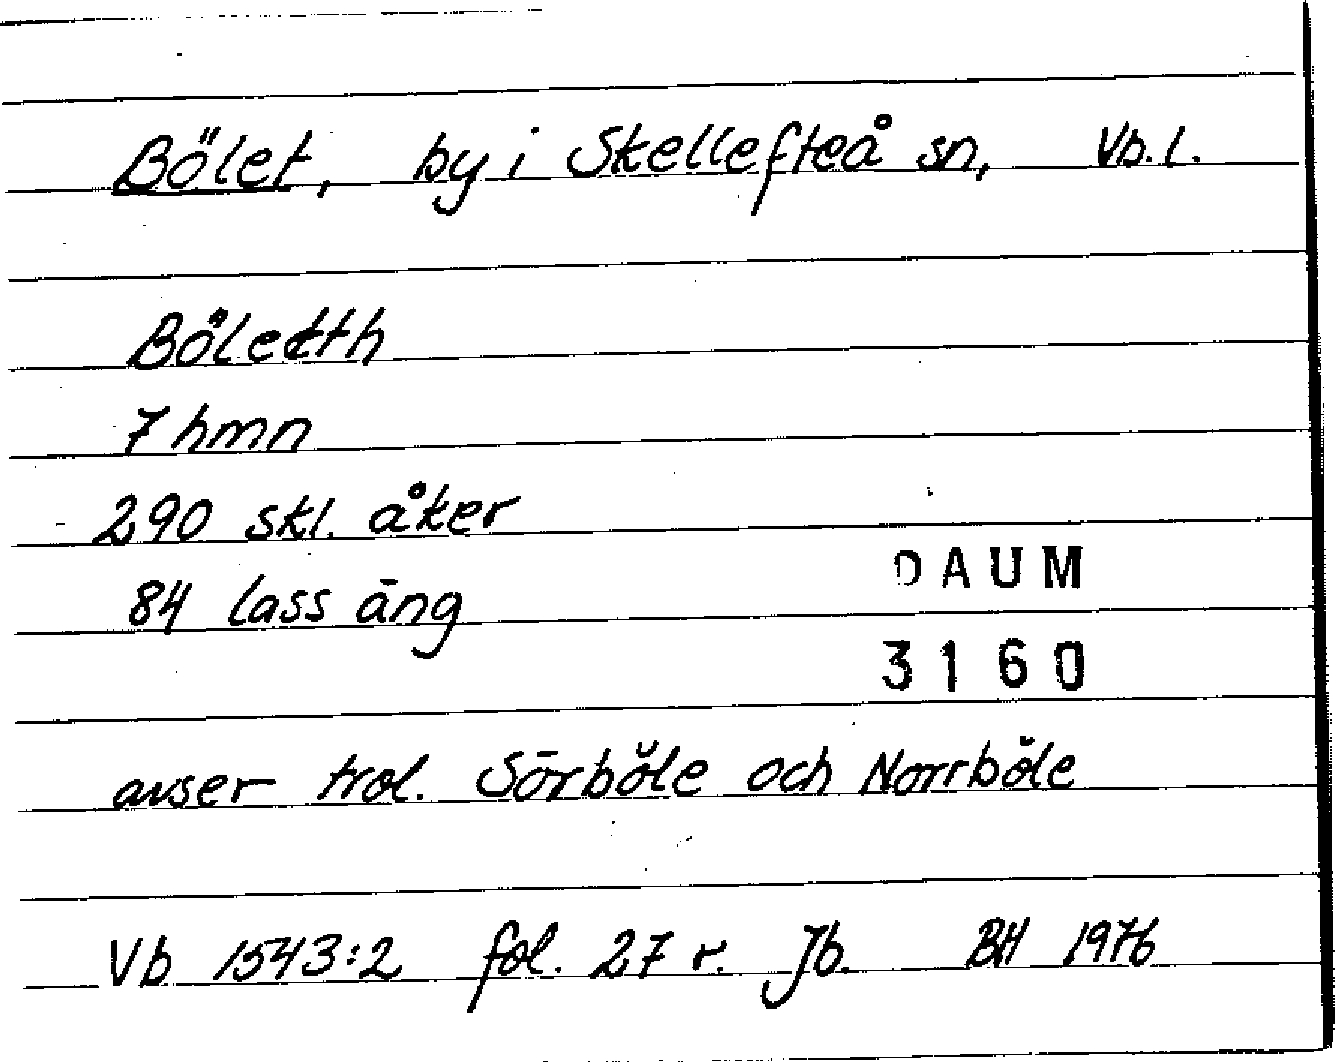 Bölet, by i Skellefteå sn, Vb. l.
Böletth
7 hmn
290 skl. åker
84 lass äng
DAUM
3160
avser trol. Sörböle och Norrböle
Vb 1543:2 fol. 27 r. Jb. BH 1976